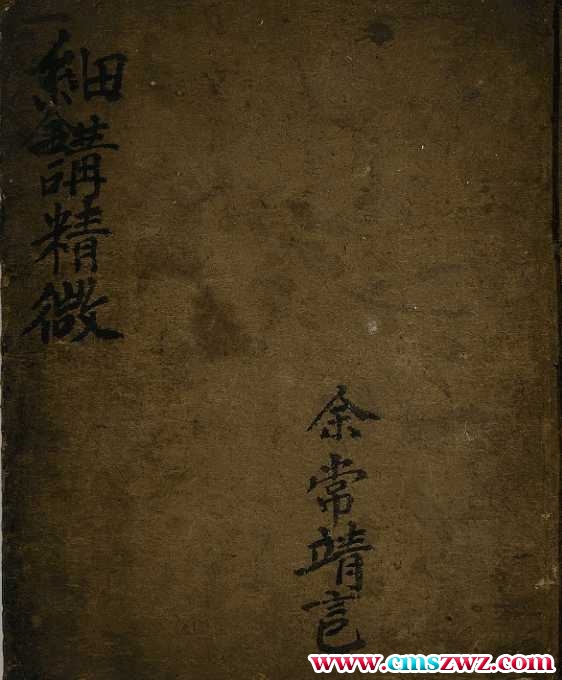 細講精微
余常靖
www.cmszwz.com